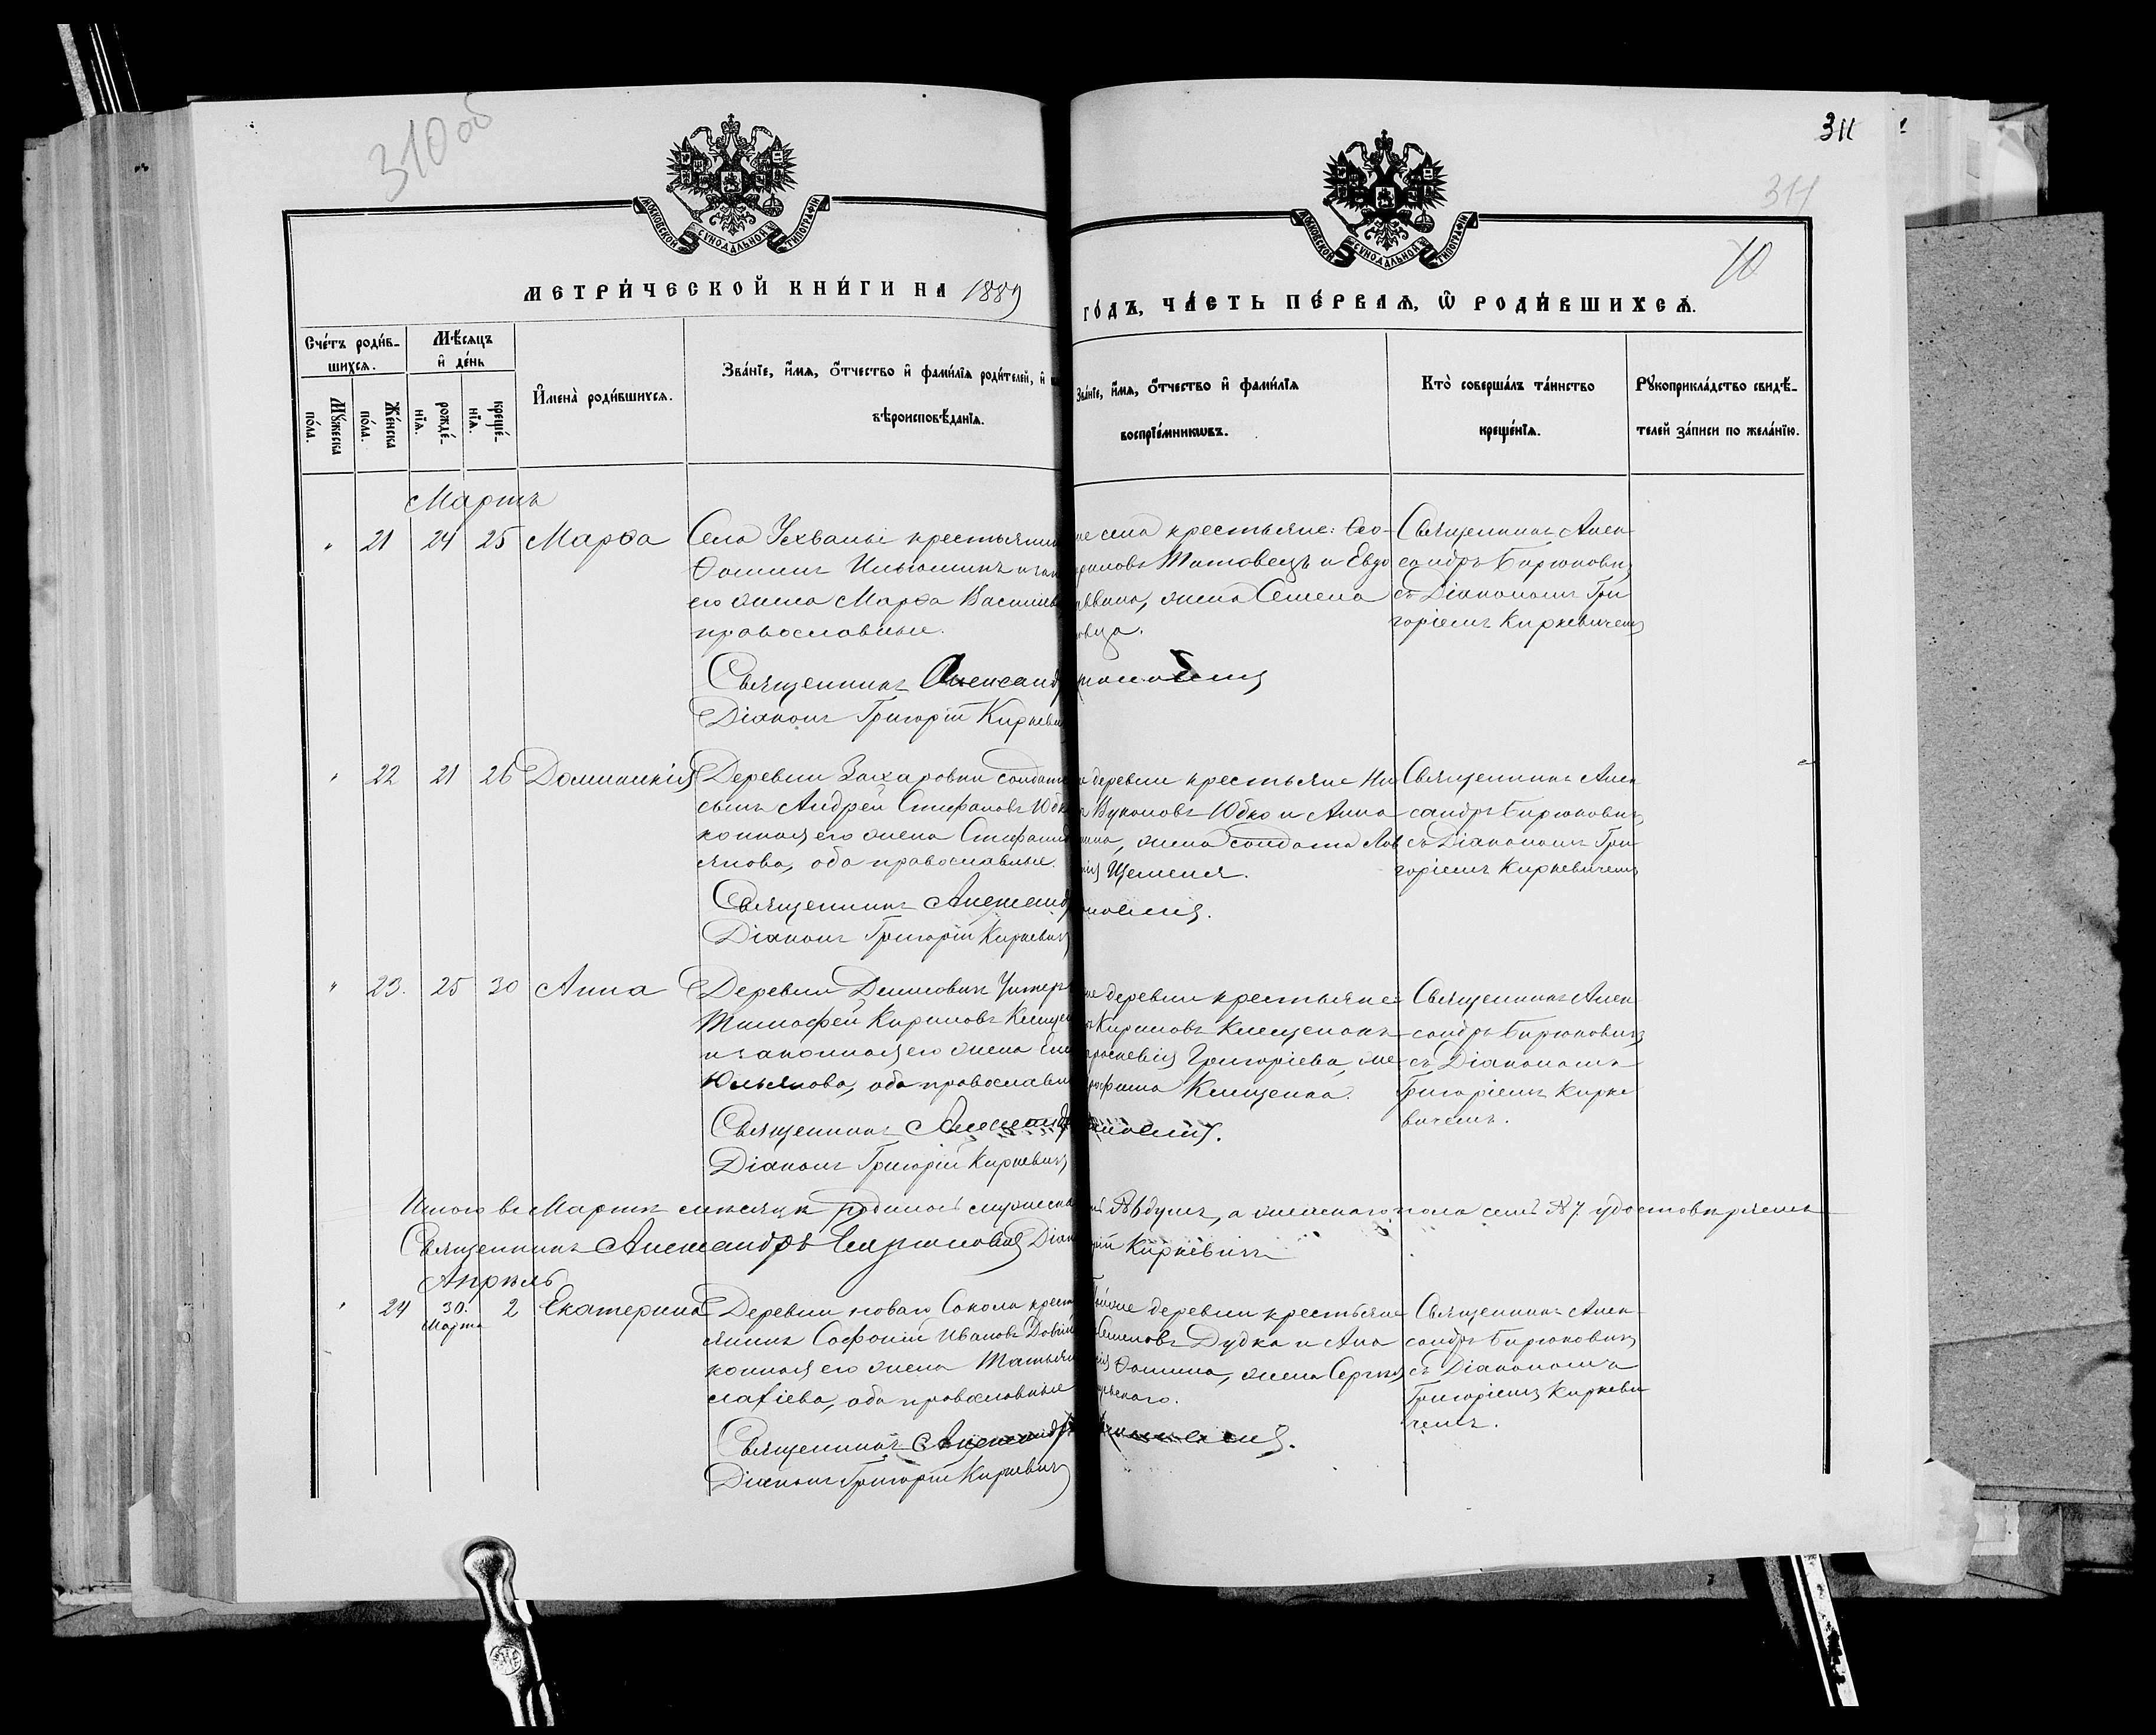 310 об
311
311
10
МОСКОВСКОЙ СѴНОДАЛЬНОЙ ТИПОГРАФІИ
МОСКОВСКОЙ СѴНОДАЛЬНОЙ ТИПОГРАФІИ
МЕТРИ́ЧЕСКОЙ КНИ́ГИ НА 1889
ГО́ДЪ, ЧА́СТЬ ПЕ́РВАѦ, Ѽ РОДИ́ВШИХСѦ.
Сче́тъ роди́в-
шихсѧ.
Мꙋ́жеска по́ла.
Же́нска по́ла.
Мѣ́сѧцъ
и҆ де́нь
рожде́-
нїѧ.
креще́-
нїѧ.
И҆мена̀ роди́вшихсѧ.
Зва́нїе, и҆́мѧ, ѻ҆́тчество и҆ фами́лїѧ роди́телей, и҆
вѣроисповѣ́данїѧ.
Зва́нїе, и҆́мѧ, ѻ҆́тчество и҆ фами́лїѧ
воспрїе́мникѡвъ.
Кто̀ соверша́лъ та́инство
креще́нїѧ.
Рꙋкоприкла́дство свидѣ́-
телей за́писи по жела́нїю.
Мартъ
" 21 24 25 Марѳа
Села Ухвалы крестьянин
его жена Марѳа Василье
православные.
Священникъ Александ
Діаконъ Григорій Киркеви
не села крестьяне: Ѳео-
Титовецъ и Евдо
жена Семена
овца.
Священникъ Алек-
сандръ Бирюковичъ
съ Діакономъ Гри-
горіемъ Киркевичемъ
" 22 21 26 Домникія
Деревни Захаровки солдатс
сынъ Андрей Стефановъ Юбк
конная его жена Стефанид
янова, оба православные.
Священникъ Александ
Діаконъ Григорій Киркевич
деревни крестьяне Ни
Юбко и Анна
жена солдата
Щеменя.
Священникъ Алек
сандръ Бирюковичъ
съ Діакономъ Гри-
горіемъ Киркевичемъ
" 23. 25 30 Анна
Деревни Денисовичъ Унтеръ
Тимофей Кириловъ Клещен
и законная его жена
Юльянова, оба православн
Священникъ Александ
Діаконъ Григорій Киркевичъ
не деревни крестьяне
Кириловъ Клещенокъ
Григоріева, же
Клещенка.
Священникъ Алек
сандръ Бирюковичъ
съ Діакономъ
Григоріемъ Кирке
вичемъ.
Итого въ Мартѣ мѣсяцѣ родилось мужеска
а женскаго пола семь № 7. удостовѣряемъ
Священникъ Александръ Бирюковичъ Діак
рій Киркевичъ
Апрѣль
" 24 30. Марта 2 Екатерина
Деревни новаго Сокола крест
янинъ Софоній Ивановъ
конная его жена Татьян
оба православные
Священникъ Александръ
Діаконъ Григорій Киркевичъ
деревни крестьяне
Семеновъ Дудка и Ана
Ѳомина, жена Сергѣя
Священникъ Алек-
сандръ Бирюковичъ
съ Діакономъ
Григоріемъ Киркеви
чемъ.